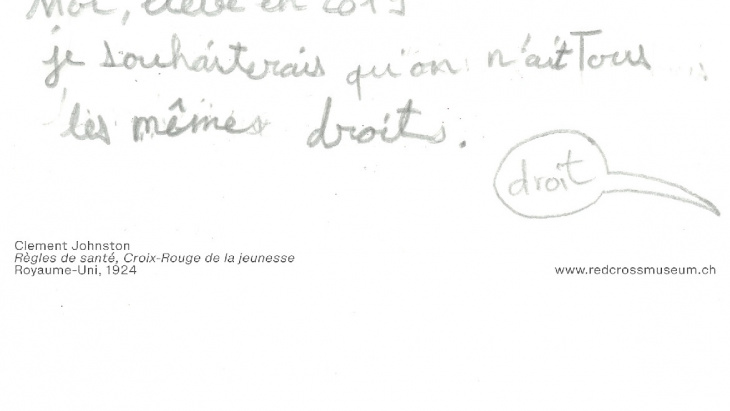 Moi, élève en 2019
je souhaiterais qu'on n'ait Tous
les mêmes droits.
droit
Clement Johnston
Règles de santé, Croix-Rouge de la jeunesse
Royaume-Uni, 1924
www.redcrossmuseum.ch